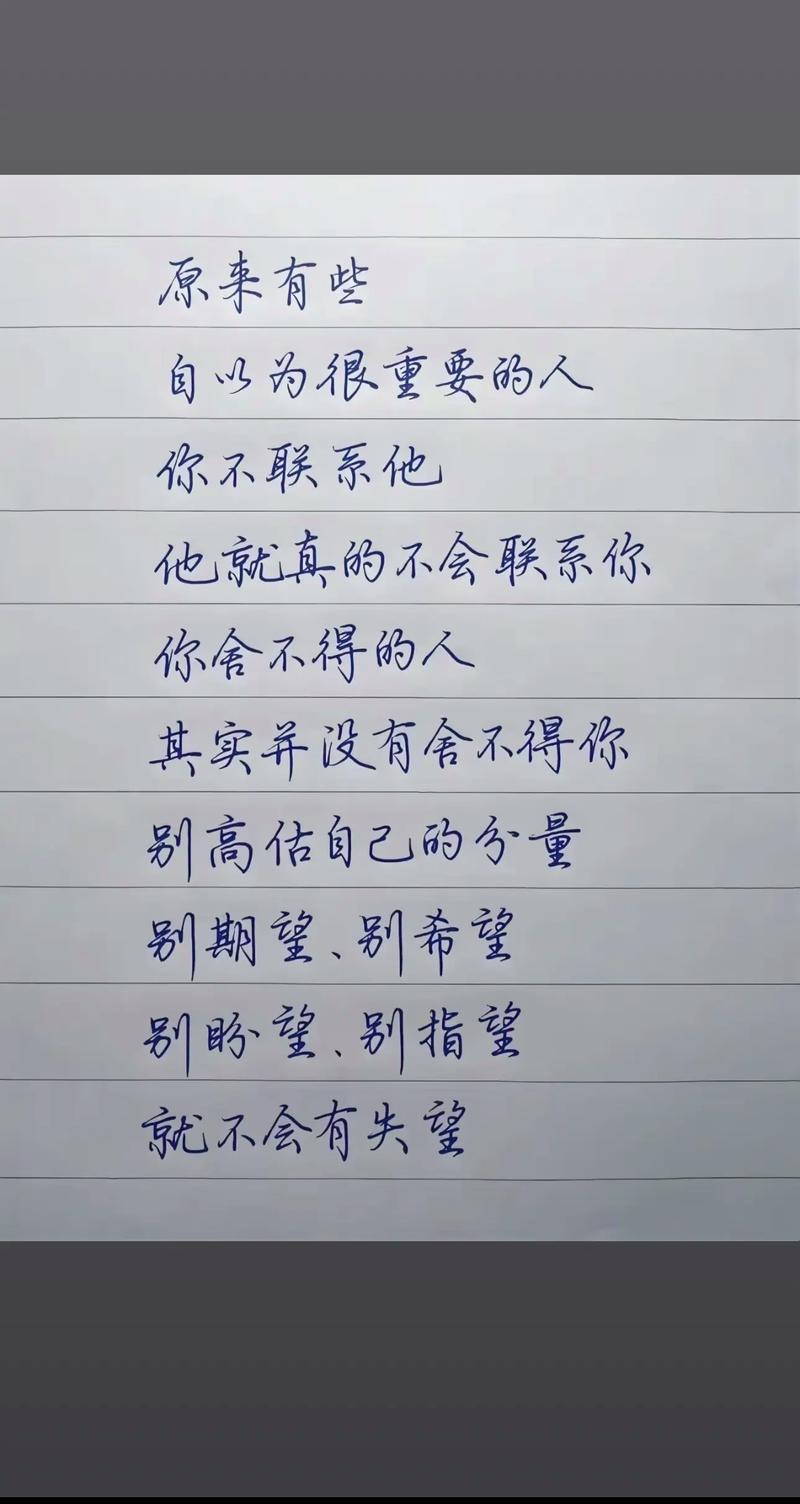 原来有些
自以为很重要的人
你不联系他
他就真的不会联系你
你舍不得的人
其实并没有舍不得你
别高估自己的分量
别期望、别希望
别盼望、别指望
就不会有失望